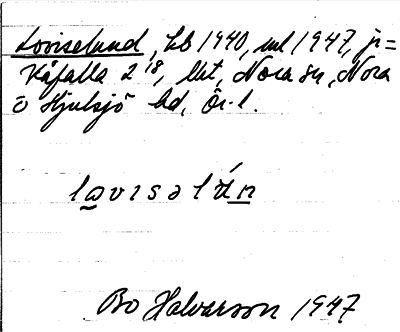 Loviselund, Lb 1940, ml 1947, ji=
Kåfalla 2 18, lht, Nora sn, Nora
o Hjulsjö bd, Ör. l.
lovısəlún
Bo Halvarson 1947